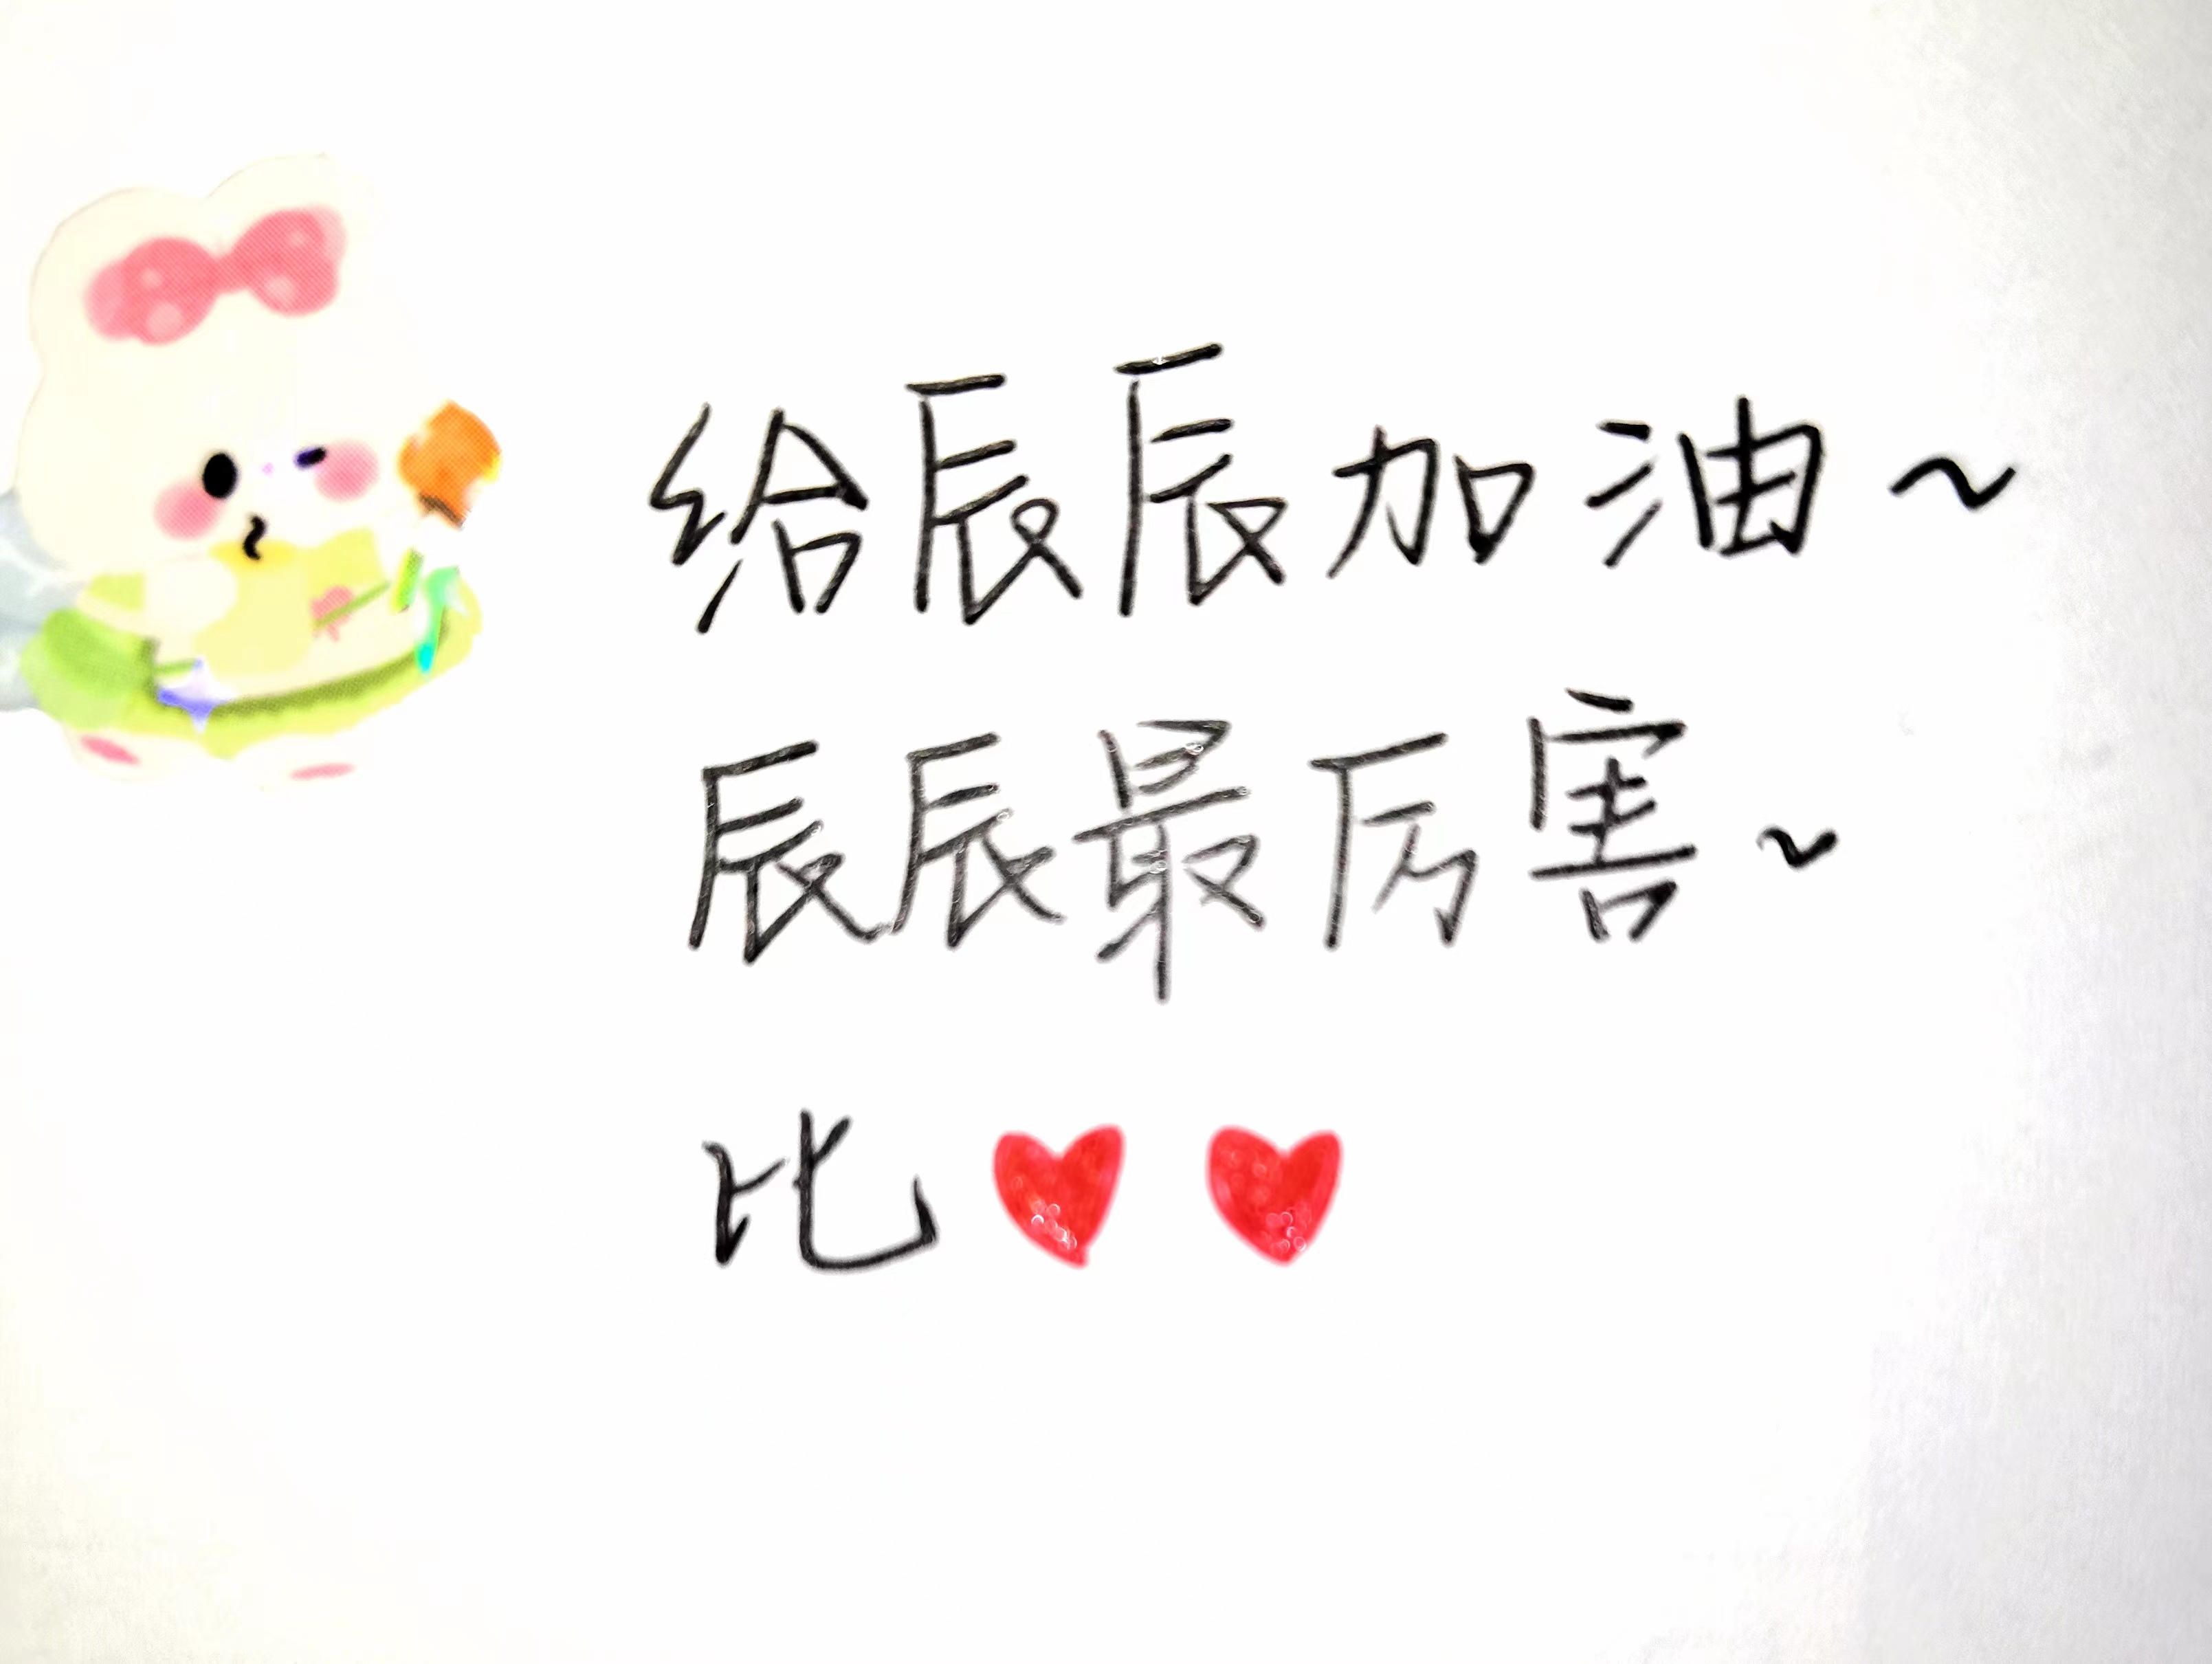 给辰辰加油~
辰辰最厉害~
比❤❤